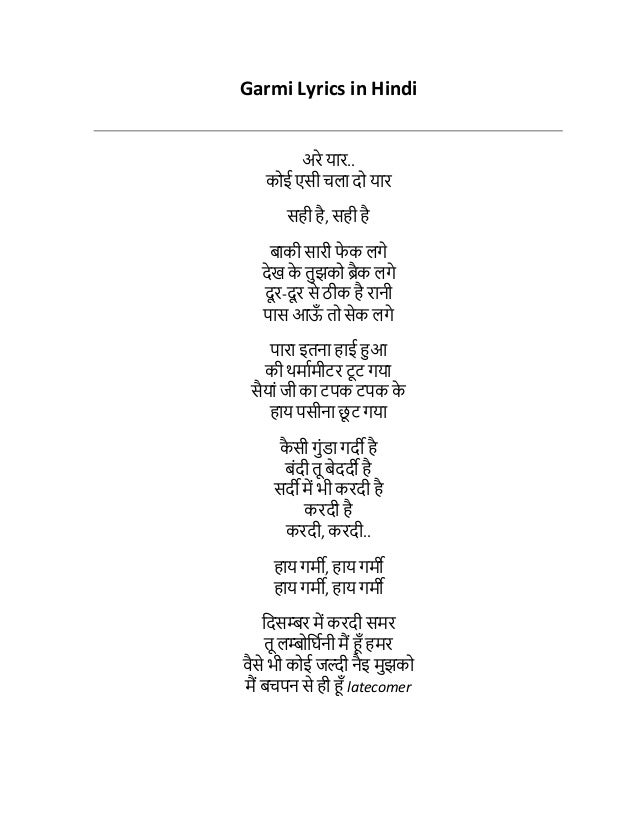 Garmi Lyrics in Hindi
अरे यार..
कोई एसी चला दो यार
सही है, सही है
बाकी सारी फेक लगे
देख के तुझको ब्रैक लगे
दूर-दूर से ठीक है रानी
पास आऊँ तो सेक लगे
पारा इतना हाई हुआ
की थर्मामीटर टूट गया
सैयां जी का टपक टपक के
हाय पसीना छूट गया
कैसी गुंडा गर्दी है
बंदी तू बेदर्दी है
सर्दी में भी करदी है
करदी है
करदी, करदी..
हाय गर्मी, हाय गर्मी
हाय गर्मी, हाय गर्मी
दिसम्बर में करदी समर
तू लम्बोर्घिनी मैं हूँ हमर
वैसे भी कोई जल्दी नैइ मुझको
मैं बचपन से ही हूँ latecomer